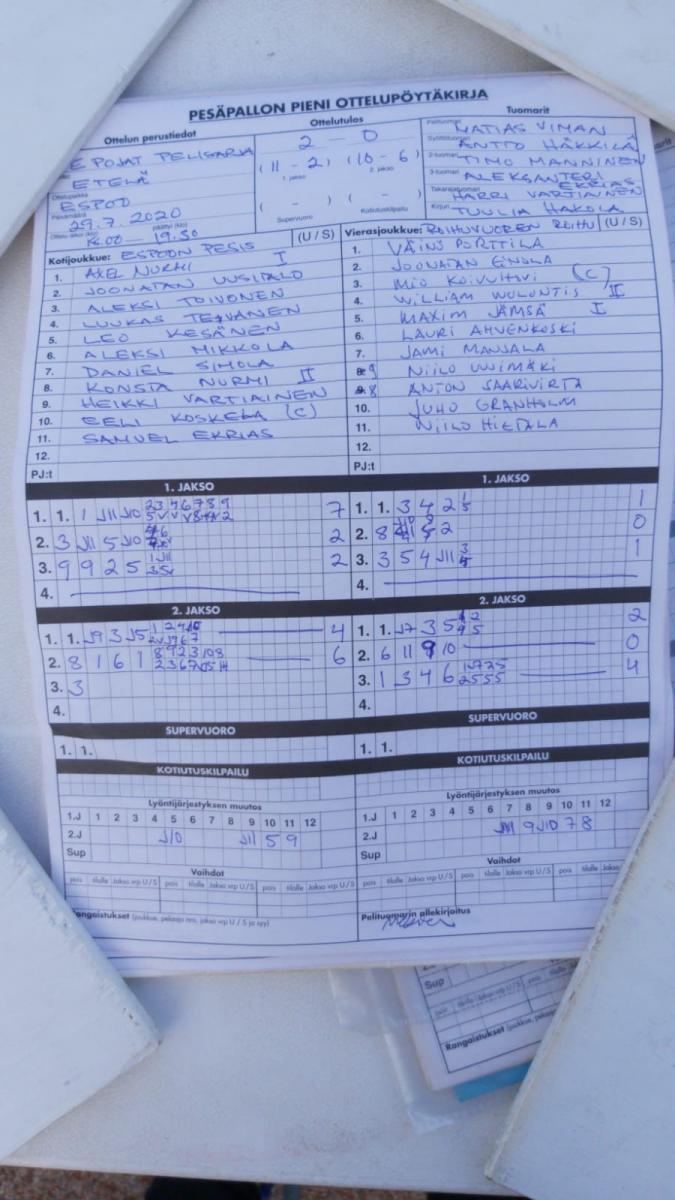 PESÄPALLON PIENI OTTELUPÖYTÄKIRJA
Ottelun perustiedot
E POJAT PELISARJA
ETELÄ
Ottelupaikka
ESPOO
Päivämäärä
29.7.2020
Ottelu alkoi (klo) päättyi (klo)
19.30
Ottelutulos
2 - 0
(11 - 2) (10 - 6)
1. jakso 2. jakso
( - ) ( - )
Supervuoro Kotiutuskilpailu
Tuomarit
Pelituomari MATIAS VIMAN
Syöttötuomari ANTTO HÄKKILÄ
2-tuomari TIMO MANNINEN
3-tuomari ALEKSANTERI EKRIAS
Takarajatuomari HARRI VARTIAINEN
Kirjuri TUULIA HAKOLA
Kotijoukkue: ESPOON PESIS (U / S)
1. AXEL NURMI I
2. JOONATAN UUSITALO
3. ALEKSI TOIVONEN
4. LUUKAS TERVANEN
5. LEO KESÄNEN
6. ALEKSI MIKKOLA
7. DANIEL SIMOLA
8. KONSTA NURMI II
9. HEIKKI VARTIAINEN
10. EELI KOSKELA (C)
11. SAMUEL EKRIAS
12.
PJ:t
Vierasjoukkue: ROIHUVUOREN ROIHU (U / S)
1. VÄINÖ PORTTILA
2. JOONATAN EINOLA
3. MIO KOIVUHOVI (C)
4. WILLIAM WOLONTIS II
5. MAXIM JÄMSÄ I
6. LAURI AHVENKOSKI
7. JAMI MANSALA
8. 9 NIILO UUIMÄKI
9. 8 ANTON SAARIVIRTA
10. JUHO GRANHOLM
11. NIILO HIETALA
12.
PJ:t
1. JAKSO
1. 1. 1 J11 J10 7
2. 3 J11 5 J10 2
3. 9 9 2 5 2
4.
2. JAKSO
1. 1. J9 3 J5 4
2. 8 1 6 1 6
3. 3
4.
SUPERVUORO
1. 1.
KOTIUTUSKILPAILU
Lyöntijärjestyksen muutos
1.J 1 2 3 4 5 6 7 8 9 10 11 12
2.J J10 J11 5 9
Sup
Vaihdot
pois tilalle Jakso vrp U / S pois tilalle Jakso vrp U / S pois tilalle Jakso vrp U / S
Rangaistukset (joukkue, pelaaja nro, jakso vrp U / S ja syy)
1. JAKSO
1. 1. 3 4 2 1
2. 8 2 0
3. 3 5 4 J11 1
4.
2. JAKSO
1. 1. J7 3 5 2
2. 6 11 9 10 0
3. 1 3 4 6 4
4.
SUPERVUORO
1. 1.
KOTIUTUSKILPAILU
Lyöntijärjestyksen muutos
1.J 1 2 3 4 5 6 7 8 9 10 11 12
2.J J11 9 J10 7 8
Sup
Vaihdot
pois tilalle Jakso vrp U / S pois tilalle Jakso vrp U / S pois tilalle Jakso vrp U / S
Pelituomarin allekirjoitus
Sup
Vaihdot
Rangaistukset (joukkue, pelaaja